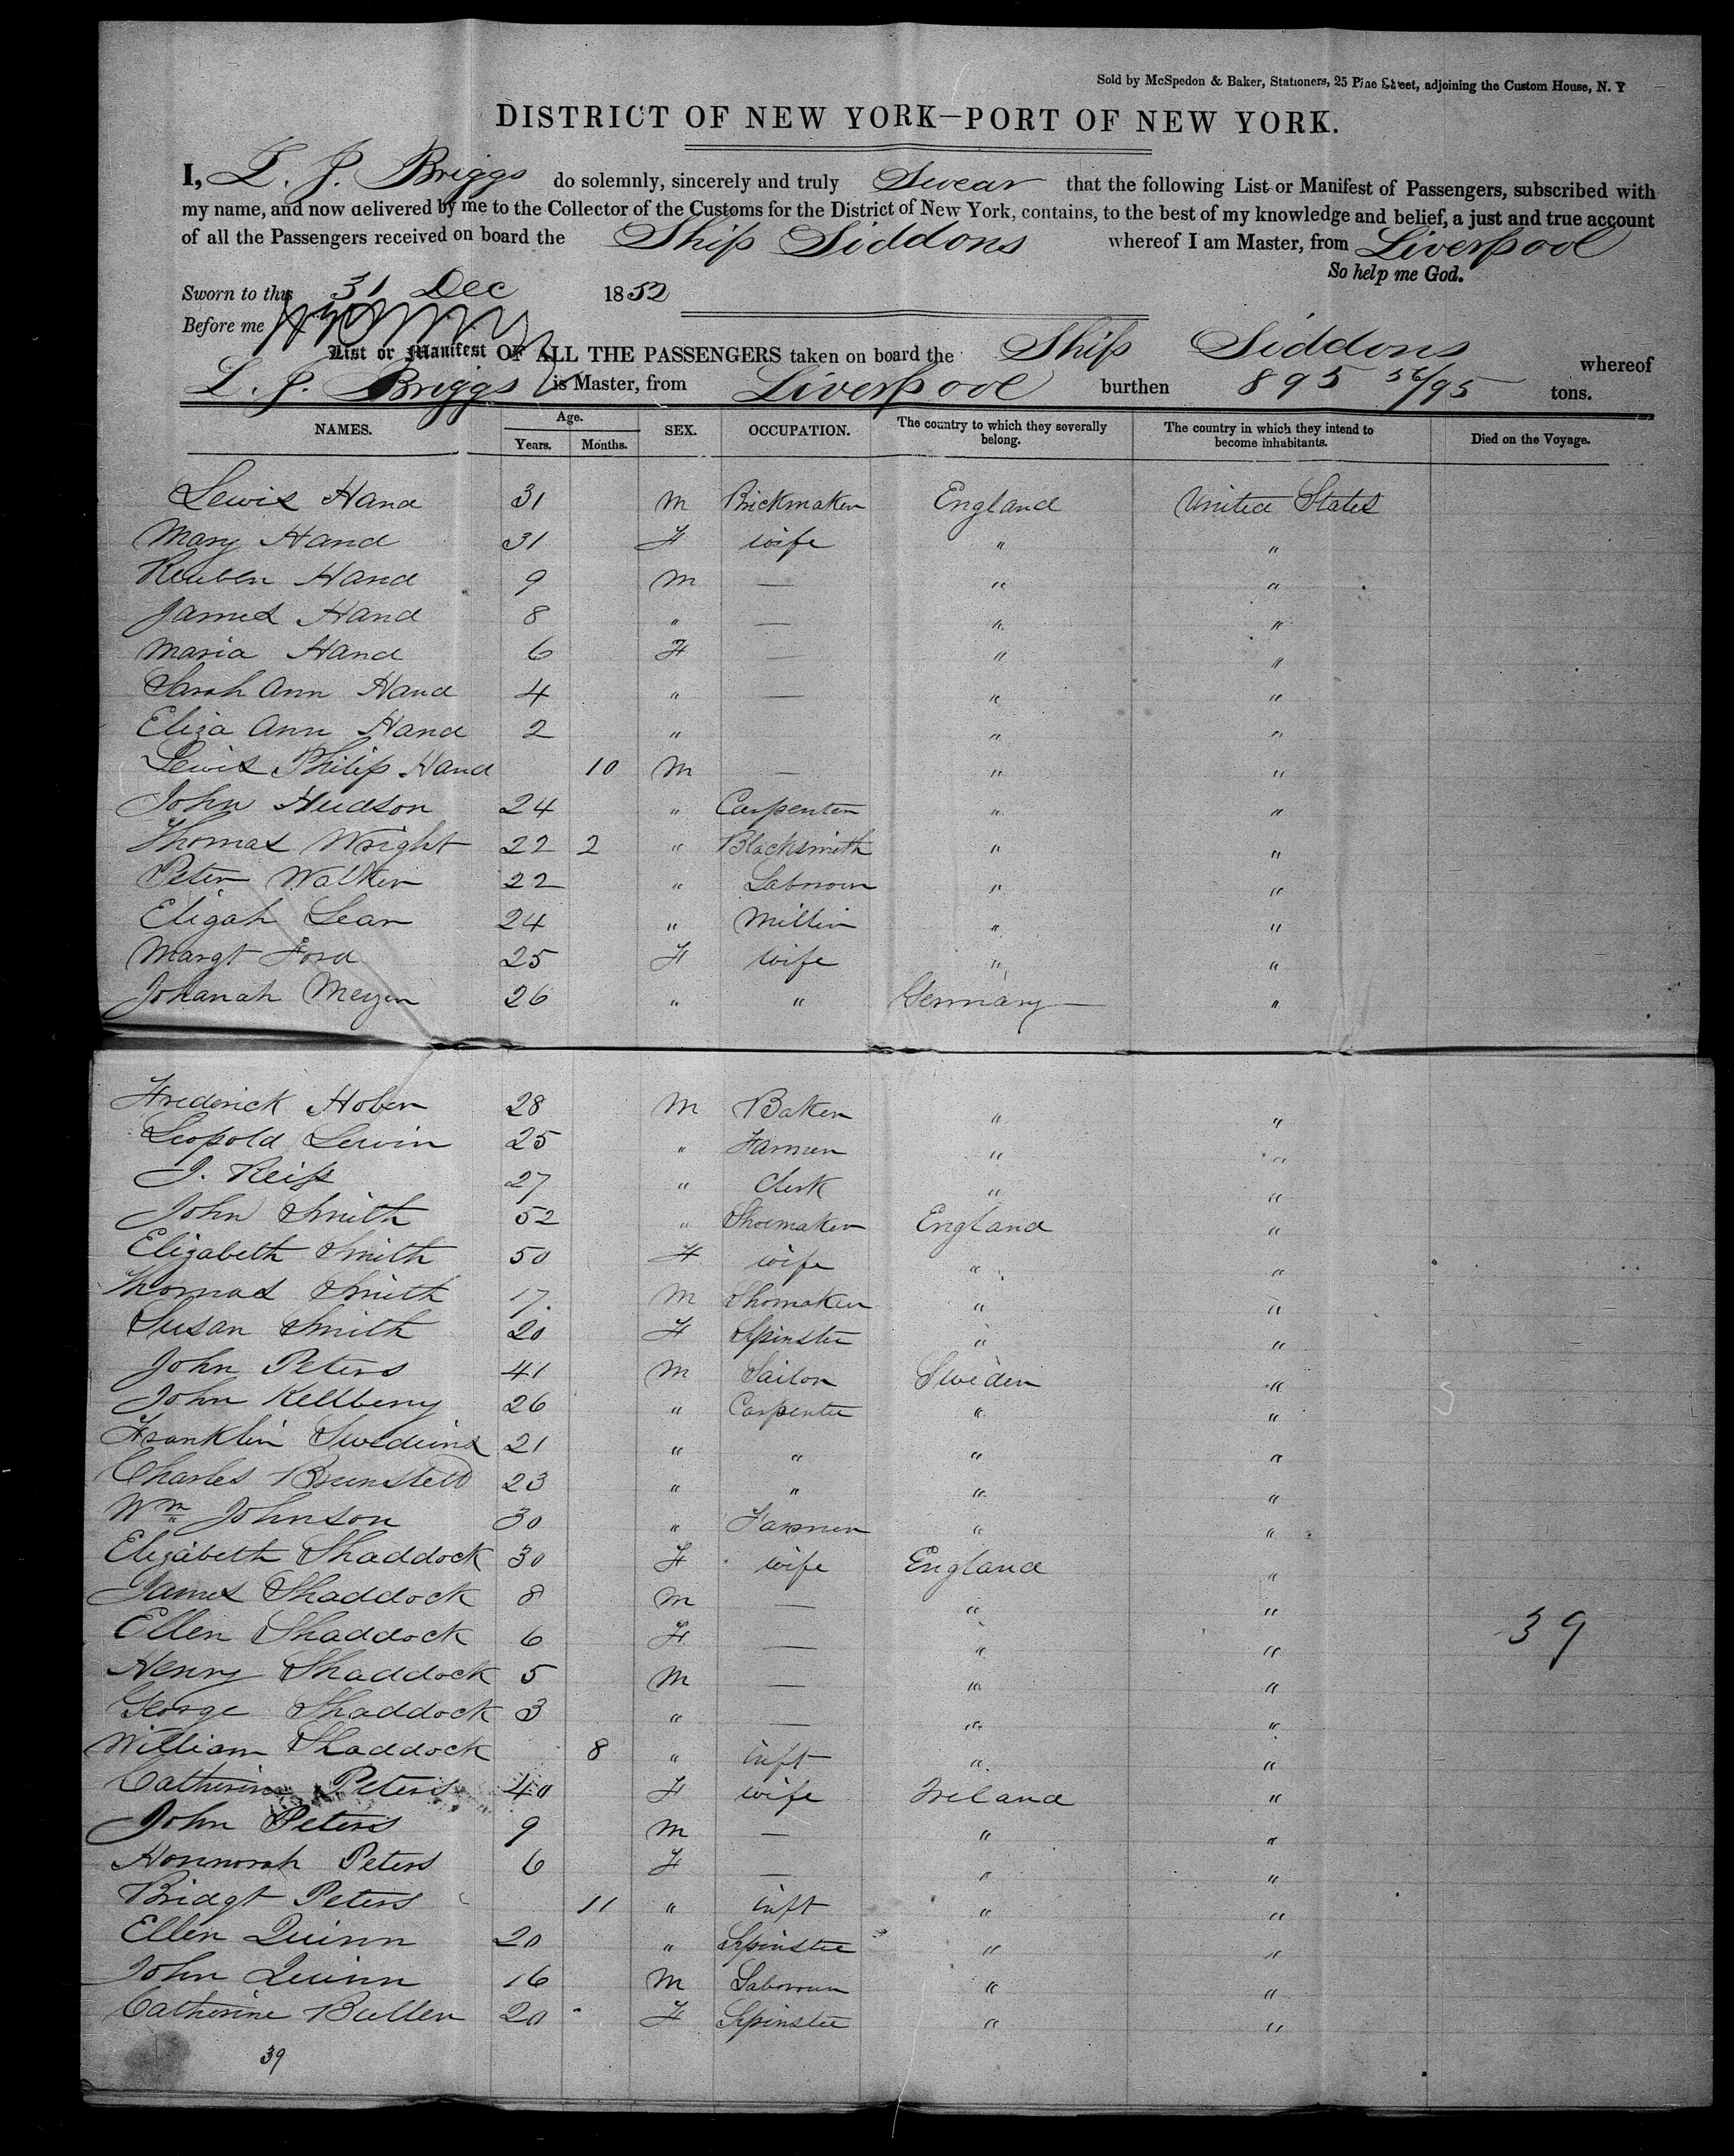 Sold by McSpedon & Baker, Stationers, 25 Pine Street, adjoining the Custom House, N. Y
DISTRICT OF NEW YORK—PORT OF NEW YORK.
I, E. J. Briggs do solemnly, sincerely and truly Swear that the following List or Manifest of Passengers, subscribed with
my name, and now delivered by me to the Collector of the Customs for the District of New York, contains, to the best of my knowledge and belief, a just and true account
of all the Passengers received on board the Ship Siddons whereof I am Master, from Liverpool
So help me God.
Sworn to this 31 Dec 1852
Before me
List or Manifest OF ALL THE PASSENGERS taken on board the Ship Siddons whereof
E. J. Briggs is Master, from Liverpool burthen 895 56/95 tons.
NAMES. Age. Years. Months. SEX. OCCUPATION. The country to which they severally belong. The country in which they intend to become inhabitants. Died on the Voyage.
Lewis Hand 31 M Brickmaker England United States
Mary Hand 31 F wife " "
Reuben Hand 9 M — " "
James Hand 8 " — " "
Maria Hand 6 F — " "
Sarah Ann Hand 4 " — " "
Eliza Ann Hand 2 " " "
Lewis Philip Hand 10 M — " "
John Hudson 24 " Carpenter " "
Thomas Wright 22 2 " Blacksmith " "
Peter Walker 22 " Labrour " "
Eligah Lear 24 " Miller " "
Margt Ford 25 F wife " "
Johanah Meyer 26 " " Germany "
Frederick Hober 28 M Baker " "
Leopold Lewin 25 " Farmer " "
J. Reiss 27 " Clerk " "
John Smith 52 " Shoemaker England "
Elizabeth Smith 50 F wife " "
Thomas Smith 17 M Shomaker " "
Susan Smith 20 F Spinster " "
John Peters 41 M Sailor Sweden "
John Kellberry 26 " Carpenter " "
Franklin 21 " " " "
Charles Brunstedt 23 " " " "
Wm Johnson 30 " Farmer " "
Elizabeth Shaddock 30 F wife England "
James Shaddock 8 M — " "
Ellen Shaddock 6 F — " "
39
Henry Shaddock 5 M — " "
George Shaddock 3 " — " "
William Shaddock 8 " inft " "
Catherine Peters 40 F wife Ireland "
John Peters 9 M — " "
Honnorah Peters 6 F — " "
Bridgt Peters 11 " inft " "
Ellen Quinn 20 " Spinster " "
John Quinn 16 M Labrour " "
Catherine Buller 20 F Spinster " "
39